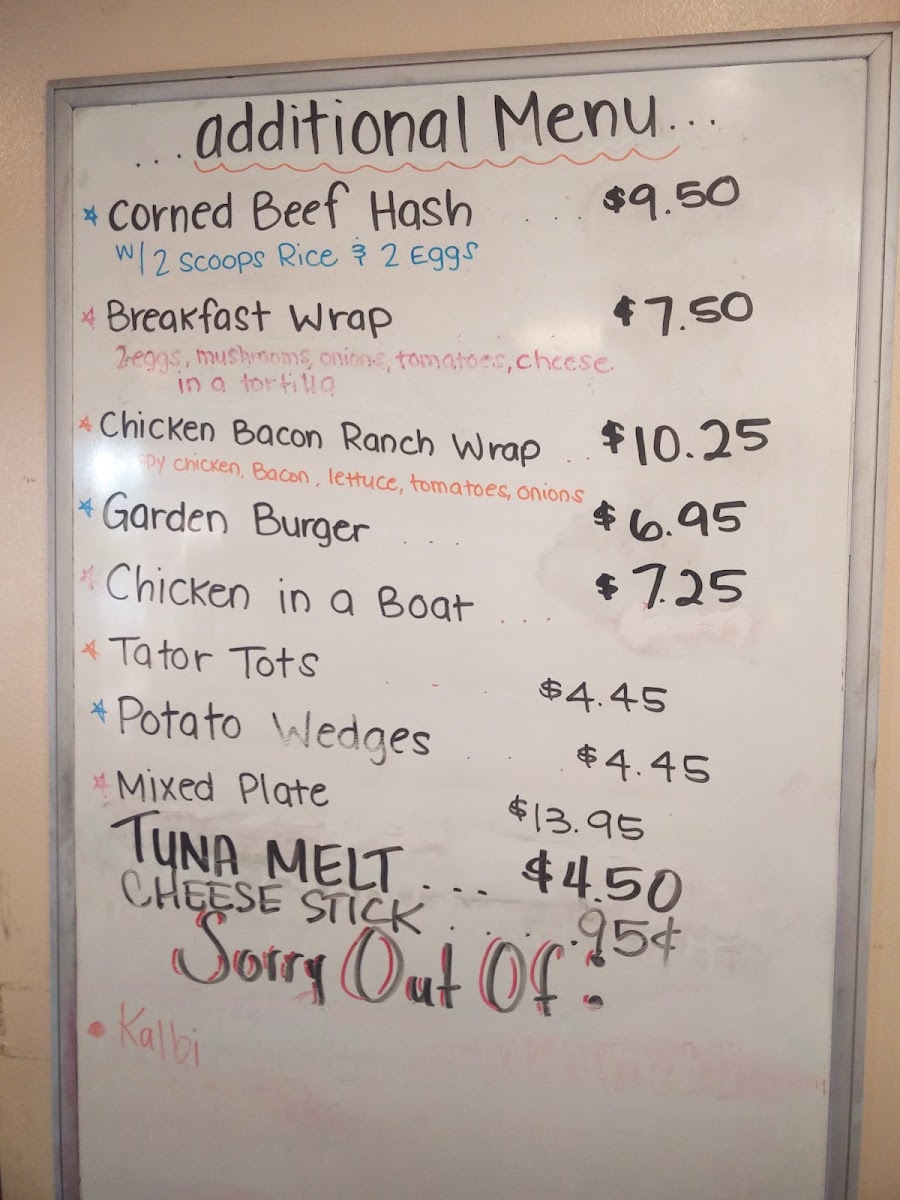 ...additional Menu...
corned Beef Hash .... $9.50
w/ 2 scoops Rice & 2 Eggs
Breakfast Wrap $7.50
2 eggs, mushrooms, onions, tomatoes, cheese
in a tortilla
Chicken Bacon Ranch Wrap .. $10.25
chicken, Bacon, lettuce, tomatoes, onions
Garden Burger ... $6.95
Chicken in a Boat .... $7.25
Tator Tots $4.45
Potato Wedges ... $4.45
Mixed Plate $13.95
TUNA MELT ... $4.50
CHEESE STICK ..... .95¢
Sorry Out Of :
• Kalbi